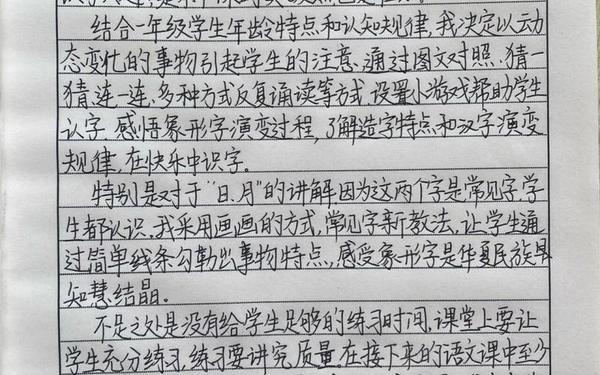 结合一年级学生年龄特点和认知规律,我决定以动
态变化的事物引起学生的注意,通过图文对照、猜一
猜、连一连、多种方式反复诵读等方式,设置小游戏帮助学生
认字,感悟象形字演变过程,了解造字特点和汉字演变
规律,在快乐中识字。
特别是对于“日、月”的讲解,因为这两个字是常见字,学
生都认识,我采用画画的方式,常见字新教法,让学生通
过简单线条勾勒出事物特点,感受象形字是华夏民族早
知慧结晶。
不足之处是没有给学生足够的练习时间,课堂上要让
学生充分练习,练习要讲究质量。在接下来的语文课中至少